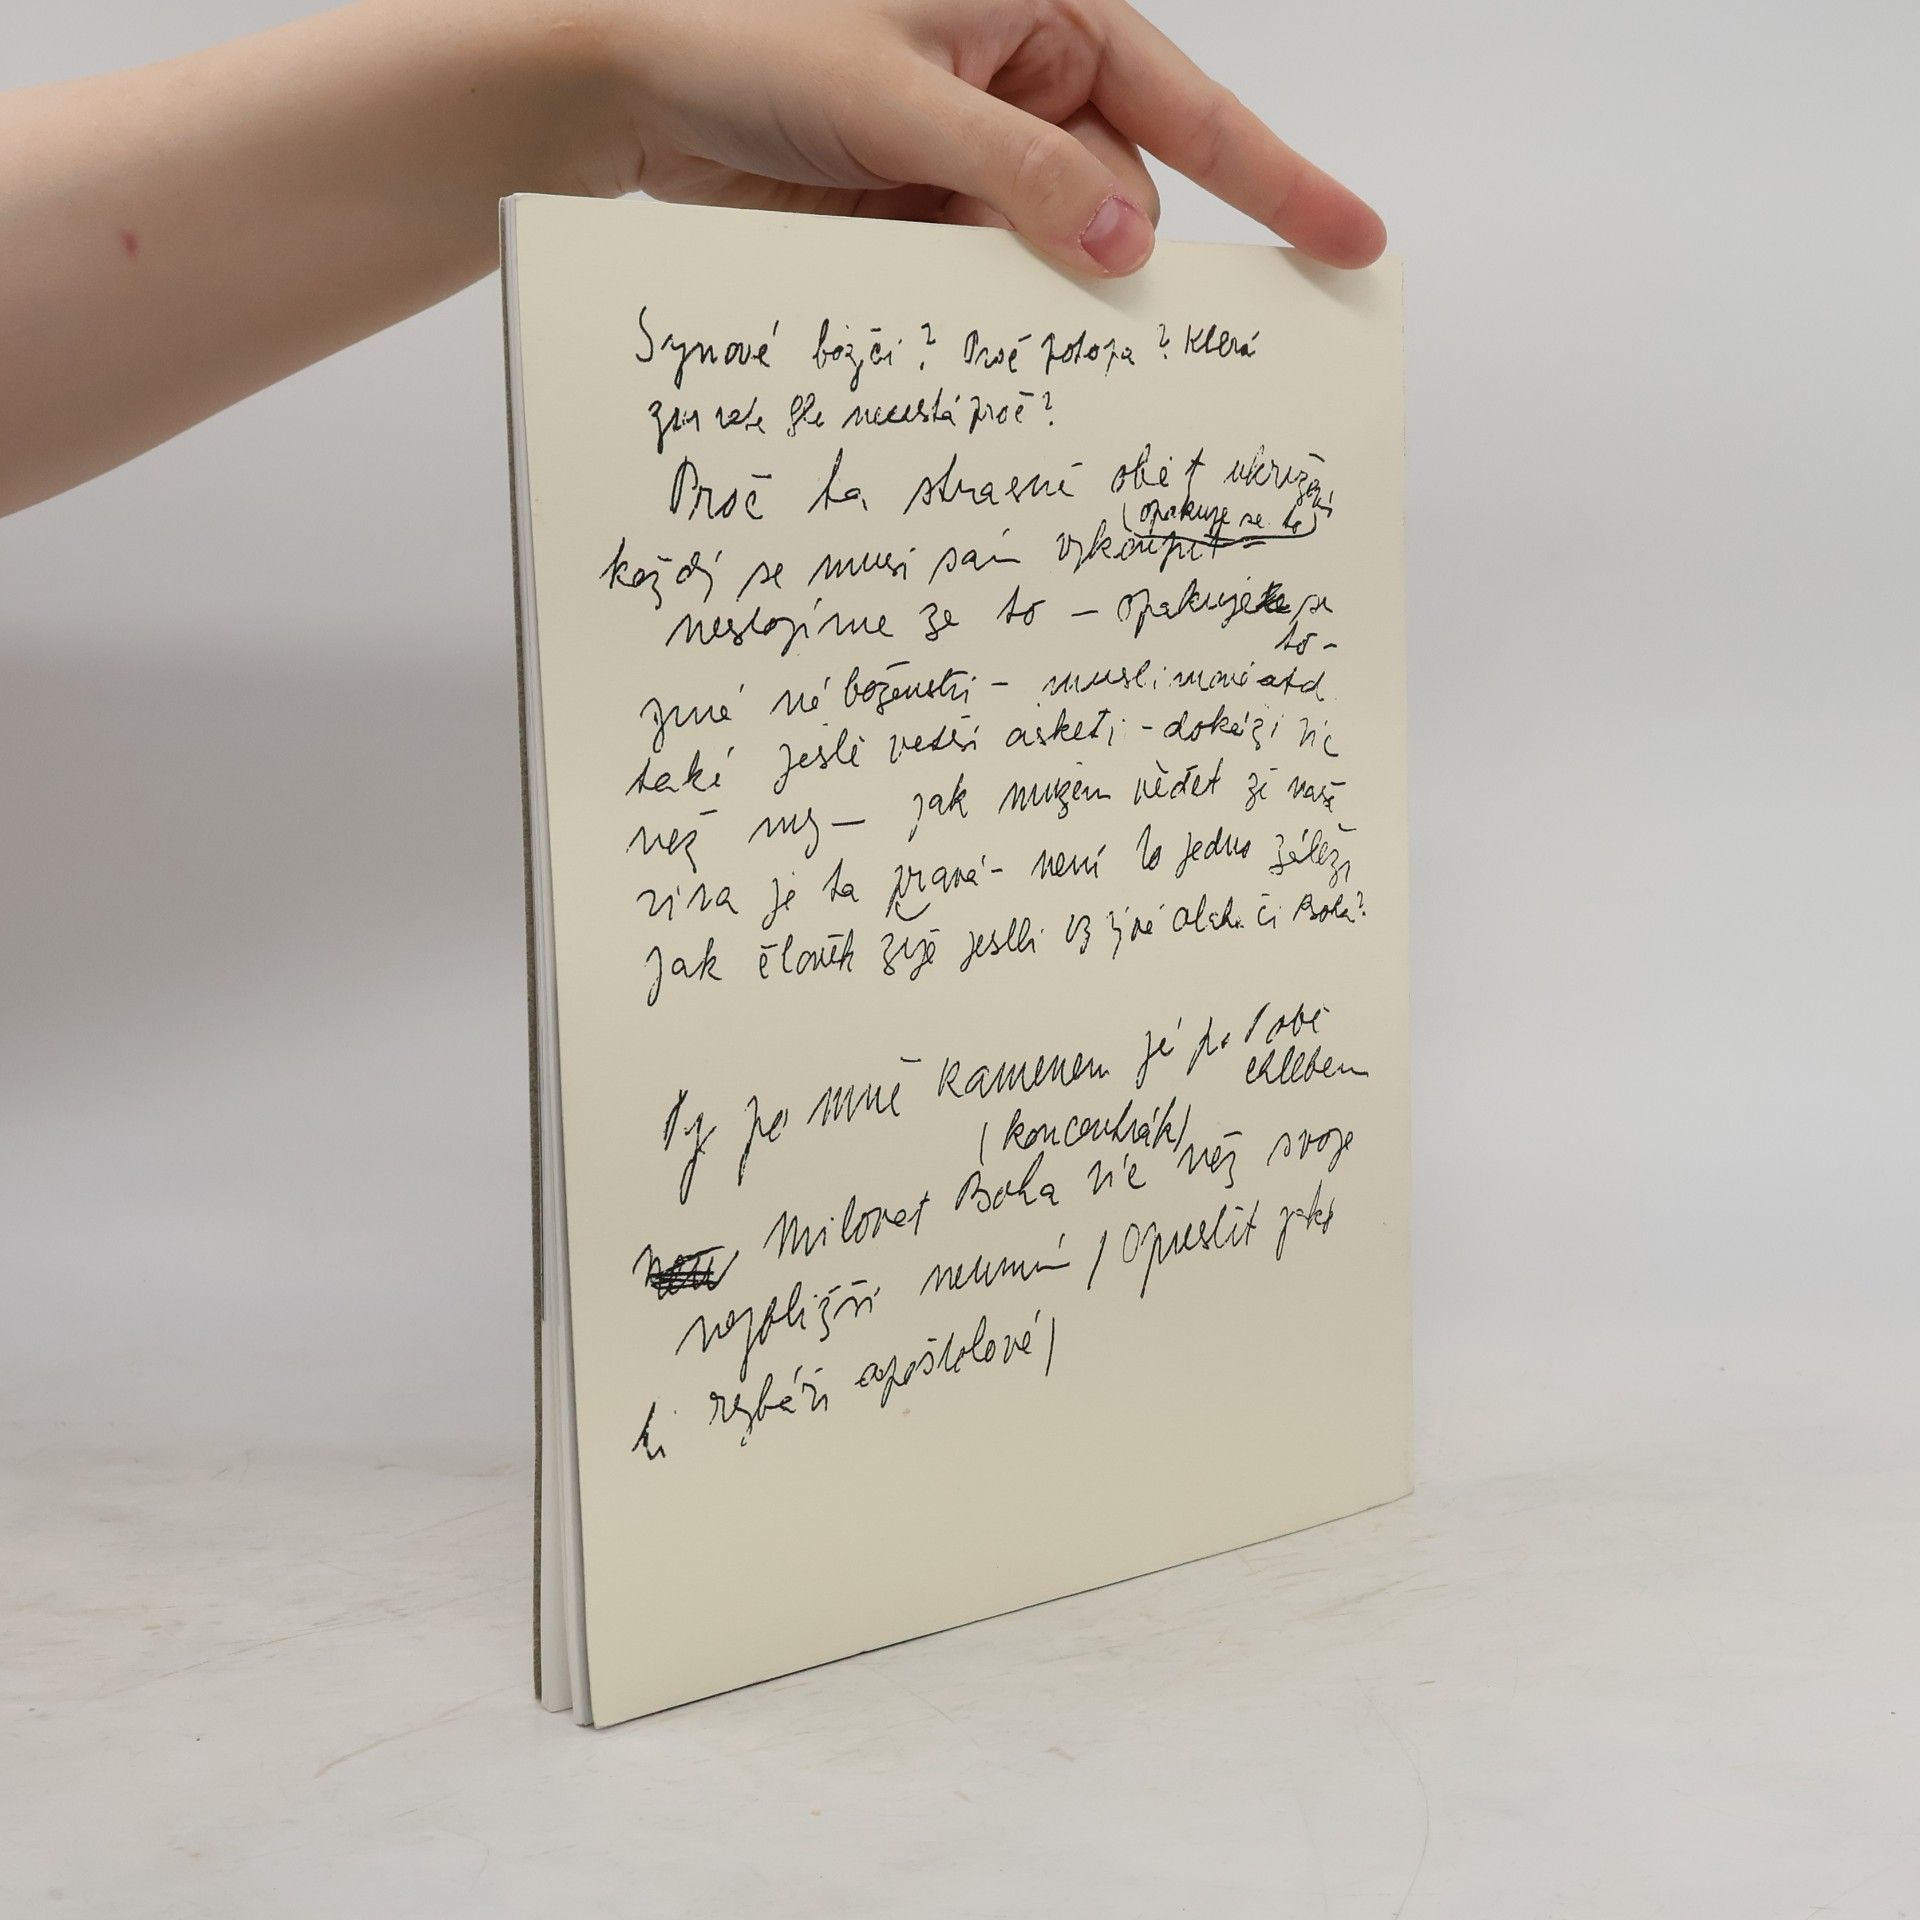 Synové boží? Proč potopa? Která
zase neustá proč?
Proč ta strasně oběť ukřižení
(opakuje se to)
každý se musi sám vykoupit =
nestojíme ze to - opakuje se
to -
jiné náboženstvi - muslimové atd
také ještě vetši asketi - dokáži víc
než my - jak mužem vědět že naše
vira je ta pravá - není to jedno záleži
jak člověk žije jestli vzývá Alaha či Boha?
Ty po mně kamenem já po tobě
chlebem
(koncentrák)
Milovat Boha víc než svoje
nejbližši neumim / Opustit jako
ti rybáři apoštolové /